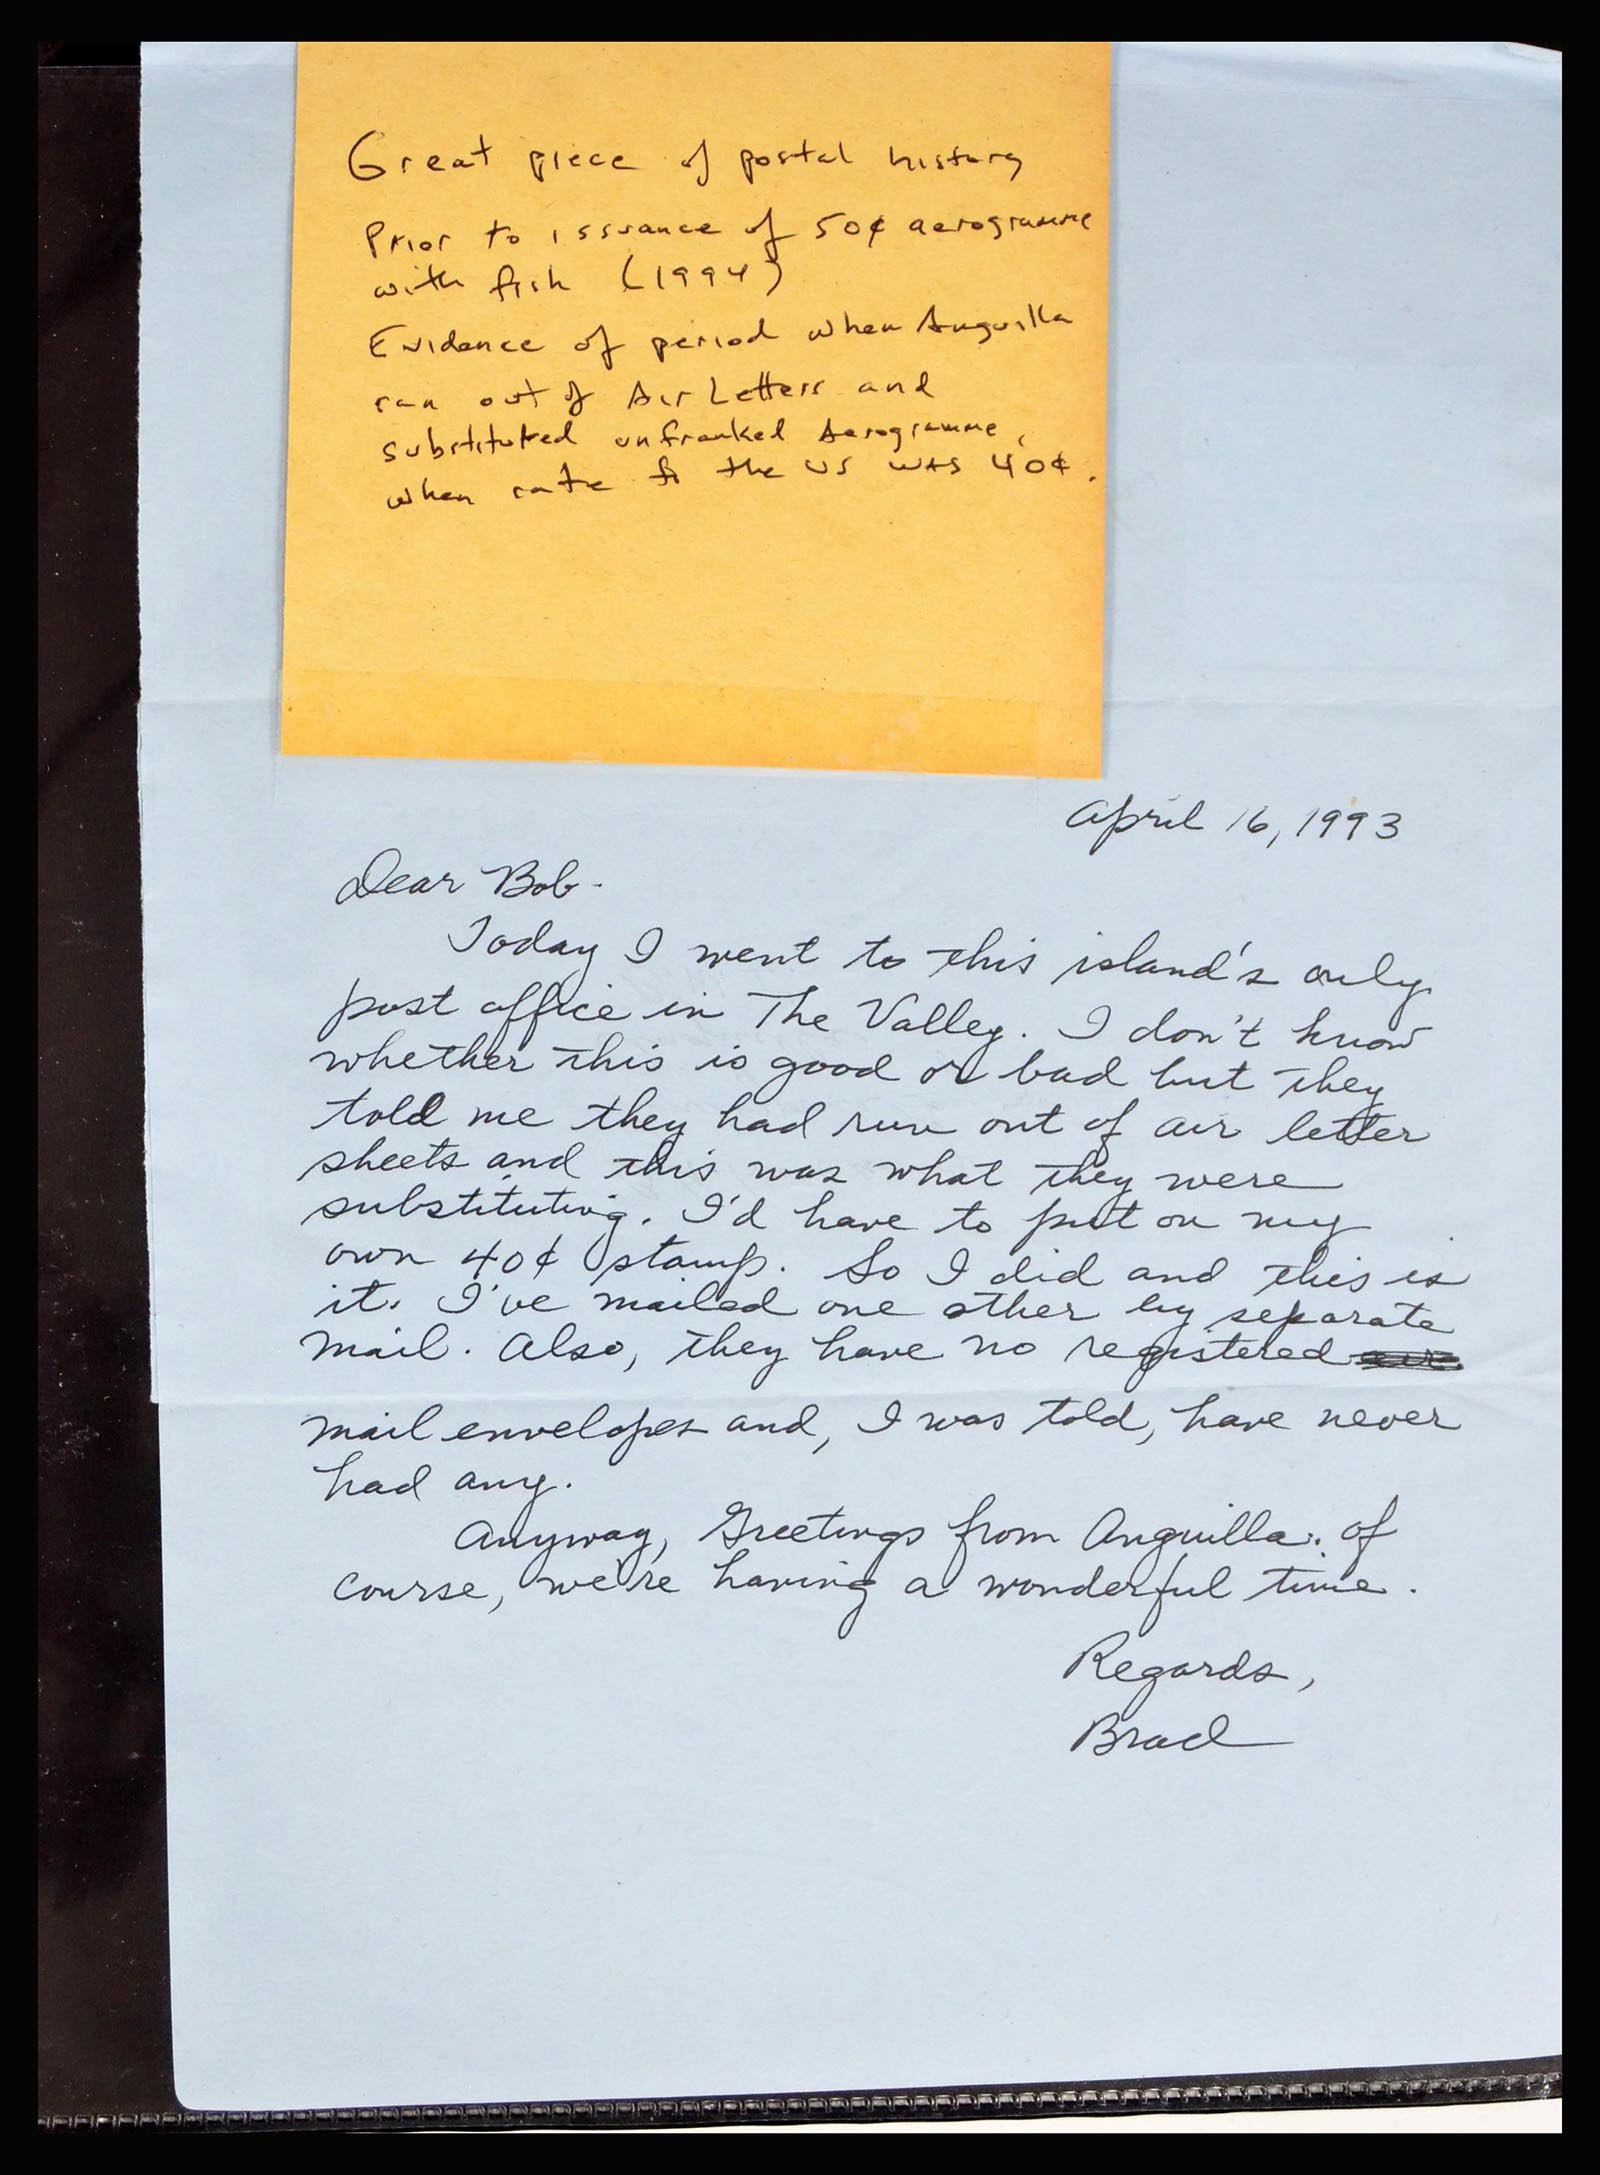 Great piece of postal history
Prior to issuance of 50¢ aerogramme
with fish (1994)
Evidence of period when Anguilla
ran out of Air Letters and
substituted unfranked Aerogramme,
when rate to the US was 40¢.
April 16, 1993
Dear Bob-
Today I went to this island's only
post office in The Valley. I don't know
whether this is good or bad but they
told me they had run out of air letter
sheets and this was what they were
substituting. I'd have to put on my
own 40¢ stamp. So I did and this is
it. I've mailed one other by separate
mail. Also, they have no registered
mail envelopes and, I was told, have never
had any.
Anyway, Greetings from Anguilla. Of
course, we're having a wonderful time.
Regards,
Brad